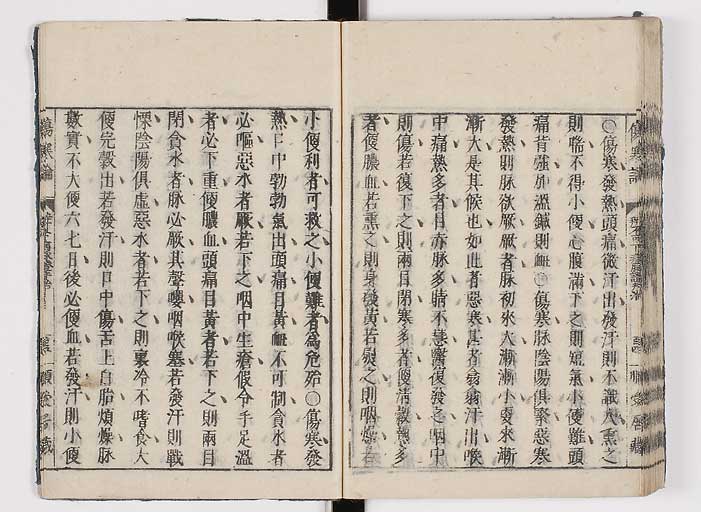 〇傷寒發熱頭痛微汗出發汗則不識人熏之
則喘不得小便心腹滿下之則短氣小便難頭
痛背強加溫鍼則衄〇傷寒脉陰陽俱緊惡寒
發熱則脉欲厥厥者脉初來大漸漸小更來漸
漸大是其候也如此者惡寒甚者翕翕汗出喉
中痛熱多者目赤脉多睛不慧醫復發之咽中
則傷若復下之則兩目閉寒多者便清穀熱多
者便膿血若熏之則身發黃若熨之則咽燥若
小便利者可救之小便難者為危殆〇傷寒發
熱口中勃勃氣出頭痛目黃衄不可制貪水者
必嘔惡水者厥若下之咽中生瘡假令手足溫
者必下重便膿血頭痛目黃者若下之則兩目
閉貪水者脉必厥其聲嚶咽喉塞若發汗則戰
慄陰陽俱虛惡水者若下之則裏冷不嗜食大
便完穀出若發汗則口中傷舌上白胎煩燥脉
數實不大便六七日後必便血若發汗則小便
傷寒論
傷寒論